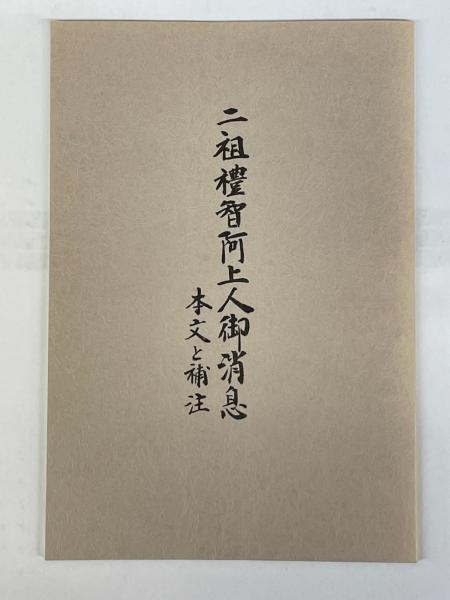 二祖禮智阿上人御消息
本文と補注